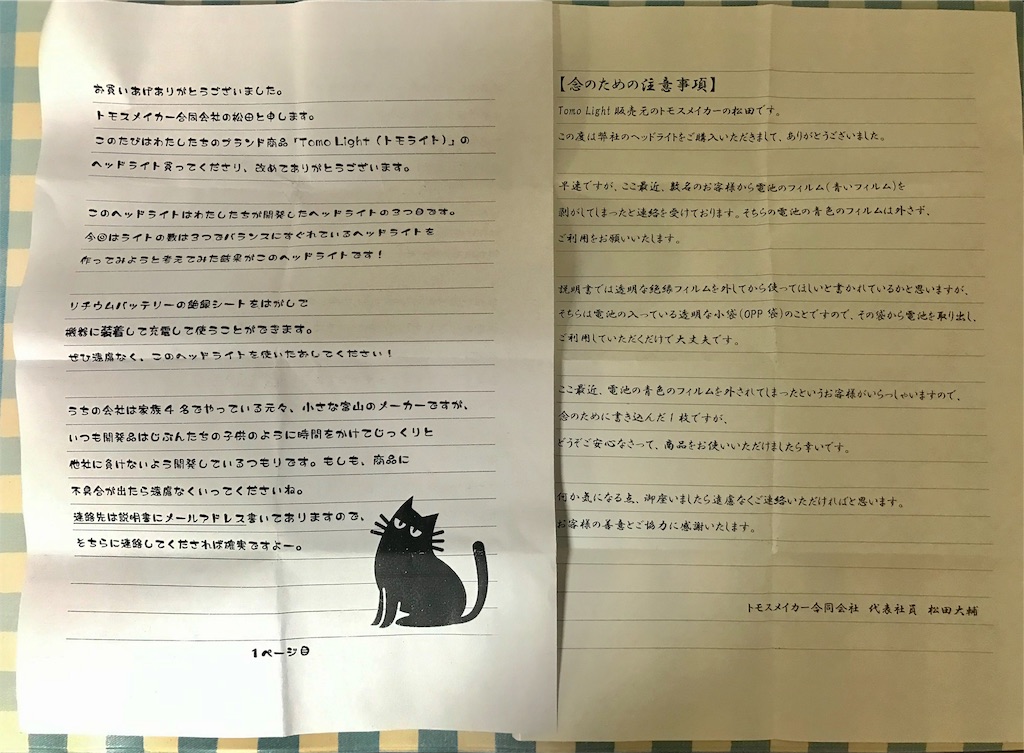 お買いあげありがとうございました。
トモスメイカー合同会社の松田と申します。
このたびはわたしたちのブランド商品「Tomo Light（トモライト）」の
ヘッドライト買ってくださり、改めてありがとうございます。
このヘッドライトはわたしたちが開発したヘッドライトの３つ目です。
今回はライトの数は３つでバランスにすぐれているヘッドライトを
作ってみようと考えてみた結果がこのヘッドライトです！
リチウムバッテリーの絶縁シートをはがして
機器に装着して充電して使うことができます。
ぜひ遠慮なく、このヘッドライトを使いたおしてください！
うちの会社は家族４名でやっている元々、小さな富山のメーカーですが、
いつも開発品はじぶんたちの子供のように時間をかけてじっくりと
他社に負けないよう開発しているつもりです。もしも、商品に
不具合が出たら遠慮なくいってくださいね。
連絡先は説明書にメールアドレス書いてありますので、
そちらに連絡してくだされば確実ですよー。
１ページ目
【念のための注意事項】
Tomo Light 販売元のトモスメイカーの松田です。
この度は弊社のヘッドライトをご購入いただきまして、ありがとうございました。
早速ですが、ここ最近、数名のお客様から電池のフィルム（青いフィルム）を
剥がしてしまったと連絡を受けております。そちらの電池の青色のフィルムは外さず、
ご利用をお願いいたします。
説明書では透明な絶縁フィルムを外してから使ってほしいと書かれているかと思いますが、
そちらは電池の入っている透明な小袋（OPP 袋）のことですので、その袋から電池を取り出し、
ご利用していただくだけで大丈夫です。
ここ最近、電池の青色のフィルムを外されてしまったというお客様がいらっしゃいますので、
念のために書き込んだ１枚ですが、
どうぞご安心なさって、商品をお使いいただけましたら幸いです。
何か気になる点、御座いましたら遠慮なくご連絡いただければと思います。
お客様の善意とご協力に感謝いたします。
トモスメイカー合同会社　代表社員　松田大輔